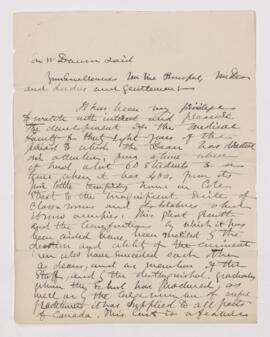 Sir W Dawson said
Your Excellencies Mr Vice Principal, Mr Dean
and Ladies and Gentlemen
It has been my privilege
to watch with interest and pleasure
the development of the Medical
Faculty in that eight years of the
period to which the Dean has
our attention; from a time when
it had about 60 Students to a
time when it has 400, from its
poor little temporary home in Cote
Street to the magnificent suite of
class rooms and
now occupies. This great growth
and the by which it has
been aided have been merited by the
devotion and ability of the eminent
men who have succeeded each other
as dean, and as members of the
Staff, and by the distinguished graduates
whom the School has produced, as
well as by the large number of useful
practitioners it has supplied to all parts
of Canada. This last is a feature